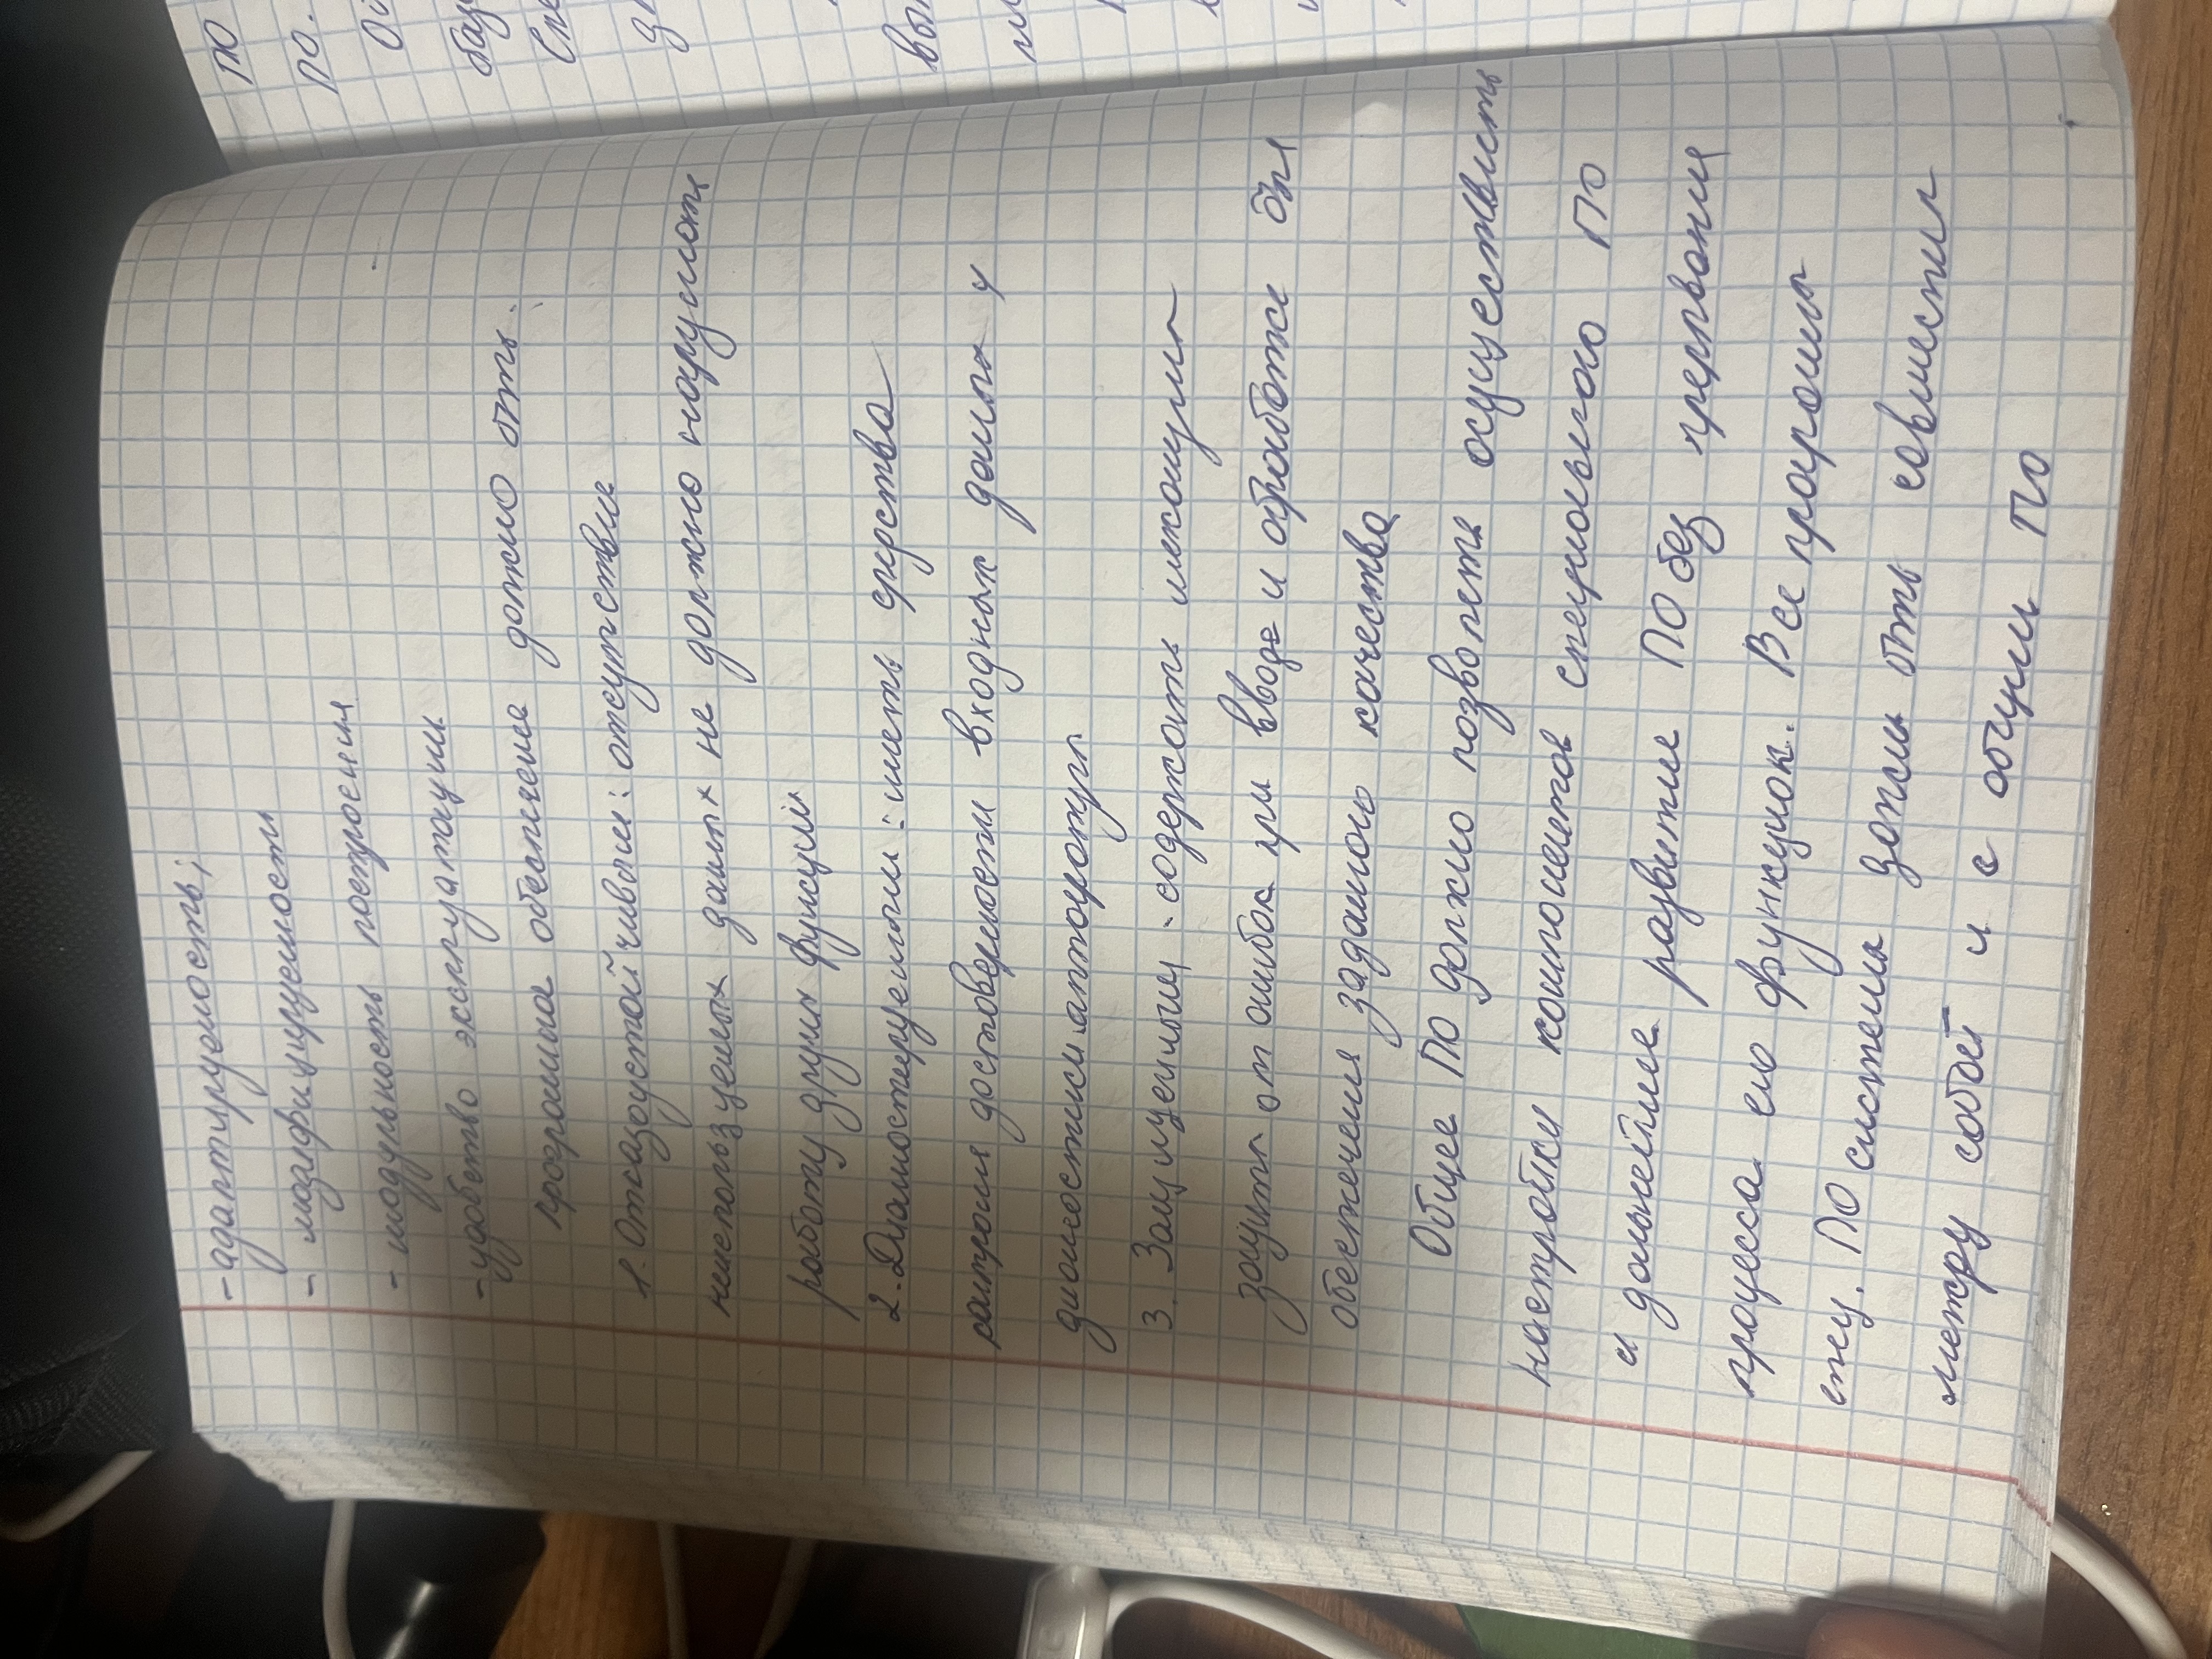 - адаптируемость;
- модифицируемости
- модульность построения
- удобство эксплуатации
Програмное обеспечение должно быть.
1. Отказоустойчивым: отсутствие
неиспользуемых даных не должно нарушать
работу других функций
2. Диагностируемым: иметь средства
контроля достоверности входных даных и
диагностики аппаратуры
3. Защищеным - содержать механизмы
защиты от ошибок при вводе и обработке для
обеспечения заданого качества
Общее ПО должно позволять осуществлять
настройки компонентов специального ПО
и дальнейшее развитие ПО без прерывания
процесса его функциони. Все програмы
ПО системы должны быть совместимы
между собой и с общим ПО
ПО
ПО.